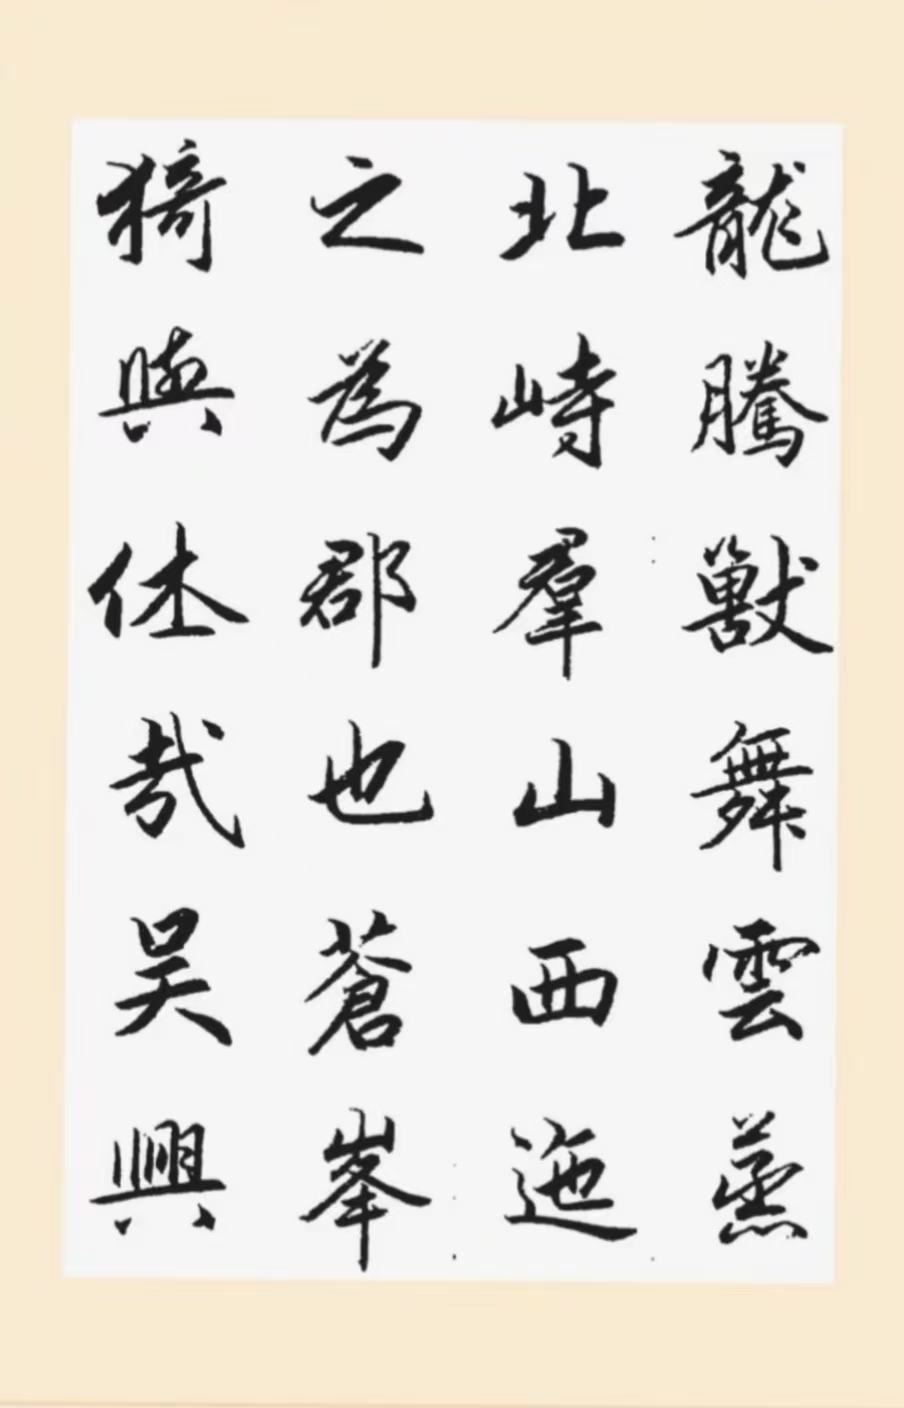 龍騰獸舞雲蒸
北峙羣山西迤
之為郡也蒼峯
猗與休哉吳興